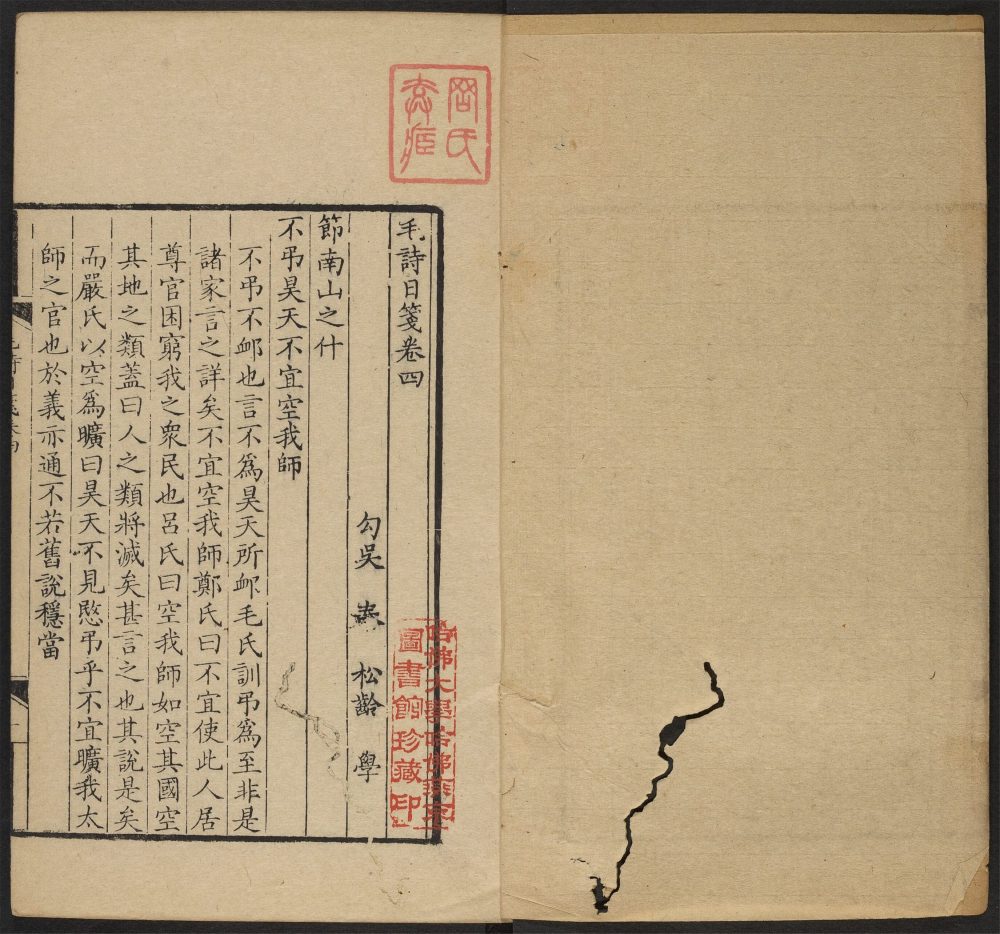 毛詩日箋卷四
勾吳 秦 松齡 學
節南山之什
不弔昊天不宜空我師
不弔不䘏也言不爲昊天所䘏毛氏訓弔爲至非是
諸家言之詳矣不宜空我師鄭氏曰不宜使此人居
尊官困窮我之衆民也呂氏曰空我師如空其國空
其地之類蓋曰人之類將滅矣甚言之也其說是矣
而嚴氏以空爲曠曰昊天不見愍弔乎不宜曠我太
師之官也於義亦通不若舊說穩當
哈佛大學哈佛燕京
圖書館珍藏印